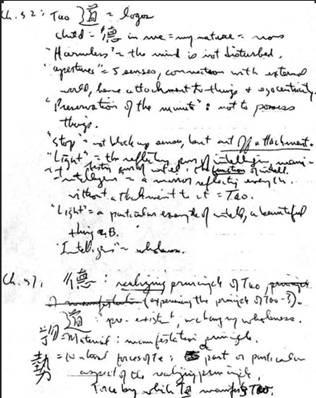 Ch. 52: Tao 道 = logos
child = 德 in me = my nature = nous
"Harmless" = the mind is not disturbed.
"apertures" = 5 senses, connection with external
world, hence attachment to things + egocentricity.
"Preservation of the minute": not to possess
things.
"Stop" = not block up senses, but cut off attachment.
"Light" = the reflecting
intelligence = a mirror reflecting
without attachment to it = Tao.
"Light" = a particular example of a beautiful
thing
"Intelligence" = wholeness.
Ch. 51, 德: realizing principle of Tao,
(expressing the principle of Tao
道: pre-existent, unchanging wholeness.
物 = Material: manifestation principle.
勢 = forces of part or particular
aspect of the realizing principle,
Force by which Te manifests Tao.